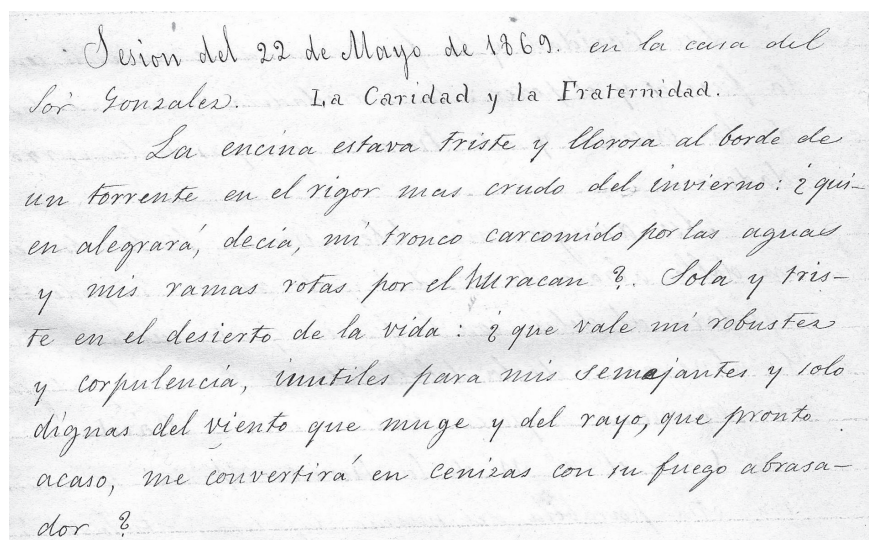 Sesion del 22 de Mayo de 1869. en la casa del
Sor Gonzalez. La Caridad y la Fraternidad.
La encina estava triste y llorosa al borde de
un torrente en el rigor mas crudo del invierno: ¿qui-
en alegrará, decia, mi tronco carcomido por las aguas
y mis ramas rotas por el huracan?. Sola y tris-
te en el desierto de la vida: ¿que vale mi robustez
y corpulencia, inutiles para mis semejantes y solo
dignas del viento que muge y del rayo, que pronto
acaso, me convertirá en cenizas con su fuego abrasa-
dor?